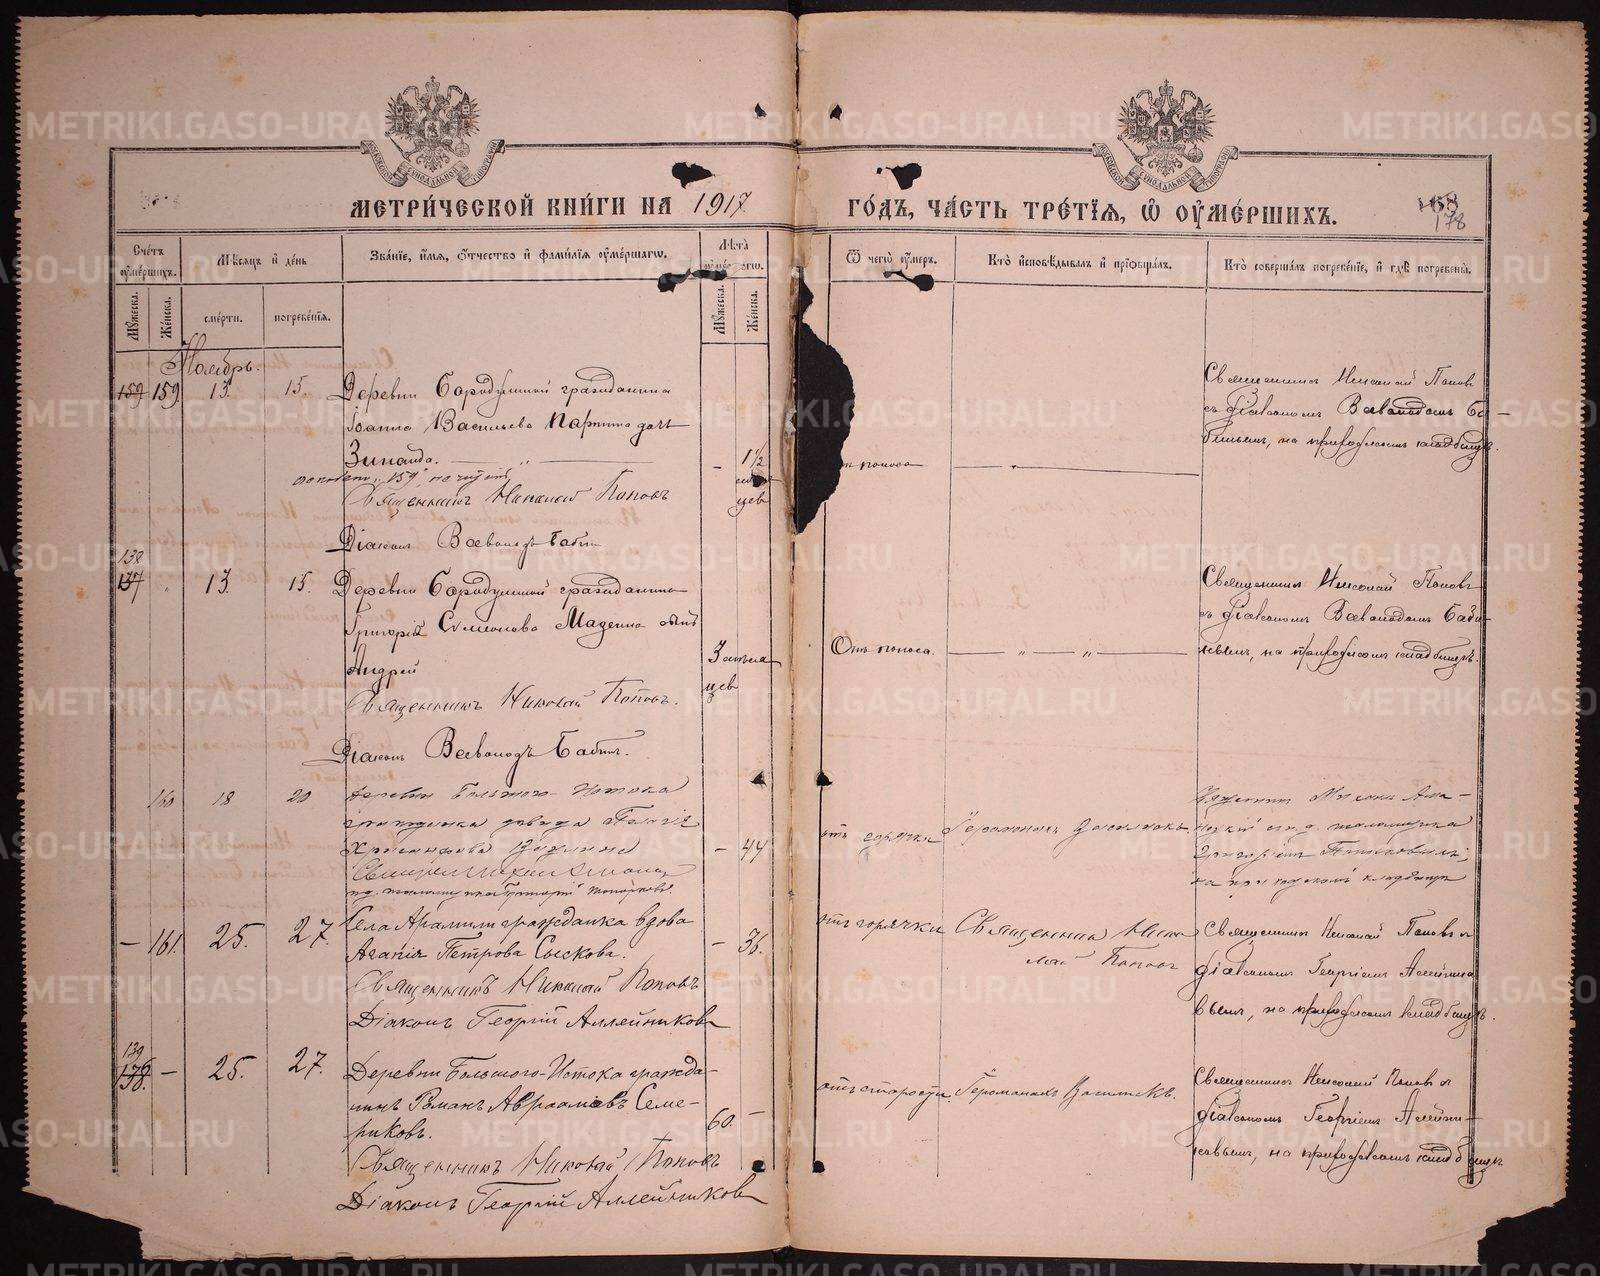 METRIKI.GASO-URAL.RU
МЕТРИ́ЧЕСКОЙ КНИ́ГИ НА 1917
ГО́ДЪ, ЧА́СТЬ ТРЕ́ТІѦ, Ѡ҆ ОУ҆МЕ́РШИХЪ.
168
178
Сче́тъ оу҆ме́ршихъ.
Мѣ́сѧцъ и҆ де́нь
Зва́нїе, и҆́мѧ, ѻ҆́тчество и҆ фами́лїѧ оу҆ме́ршагѡ.
Лѣ́та оу҆ме́ршагѡ.
Ѿ чегѡ̀ оу҆́меръ.
Кто̀ и҆сповѣ́дывалъ и҆ прїѡбща́лъ.
Кто̀ соверша́лъ погребе́нїе, и҆ гдѣ̀ погребены̀.
Мꙋ́жеска.
Же́нска.
сме́рти.
погребе́нїѧ.
Мꙋ́жеска.
Же́нска.
Ноябрь.
159 159 13. 15. Деревни Бородулиной гражданина
Іоанна Васильева Паршина дочь
Зинаида. — 1½
Священникъ Николай Поповъ
Діаконъ Всеволодъ Бабинъ
поноса
Священникъ Николай Поповъ
съ діакономъ Всеволодомъ Ба-
бинымъ, на приходскомъ кладбищѣ.
138
137 " 13. 15. Деревни Бородулиной гражданина
Григорія Симеонова Мадеина сынъ
Андрей
3 мѣся
цев
Священникъ Николай Поповъ.
Діаконъ Всеволодъ Бабинъ.
Отъ поноса.
Священникъ Николай Поповъ
съ діакономъ Всеволодомъ Баби-
новымъ, на приходскомъ кладбищѣ.
160 18 20 Деревни Большого Истока
гражданка вдова
— 44
отъ горячки
Іеромонахъ
на приходскомъ кладбищѣ
— 161. 25. 27. Села Арамили гражданка вдова
Агапія Петрова Сыскова.
— 36.
Священникъ Николай Поповъ
Діаконъ Георгій Аллейниковъ
отъ горячки
Священникъ Нико
лай Поповъ
Священникъ Николай Поповъ с
діакономъ Георгіемъ Алейнико
вымъ, на приходскомъ кладбищѣ.
139
138. — 25. 27. Деревни Большого-Истока гражда-
нинъ Романъ Авраамовъ Семе-
риковъ.
60. —
Священникъ Николай Поповъ
Діаконъ Георгій Аллейниковъ
отъ старости.
Іеромонахъ
Священникъ Николай Поповъ с
діакономъ Георгіемъ Алейни-
ковымъ, на приходскомъ кладбищѣ